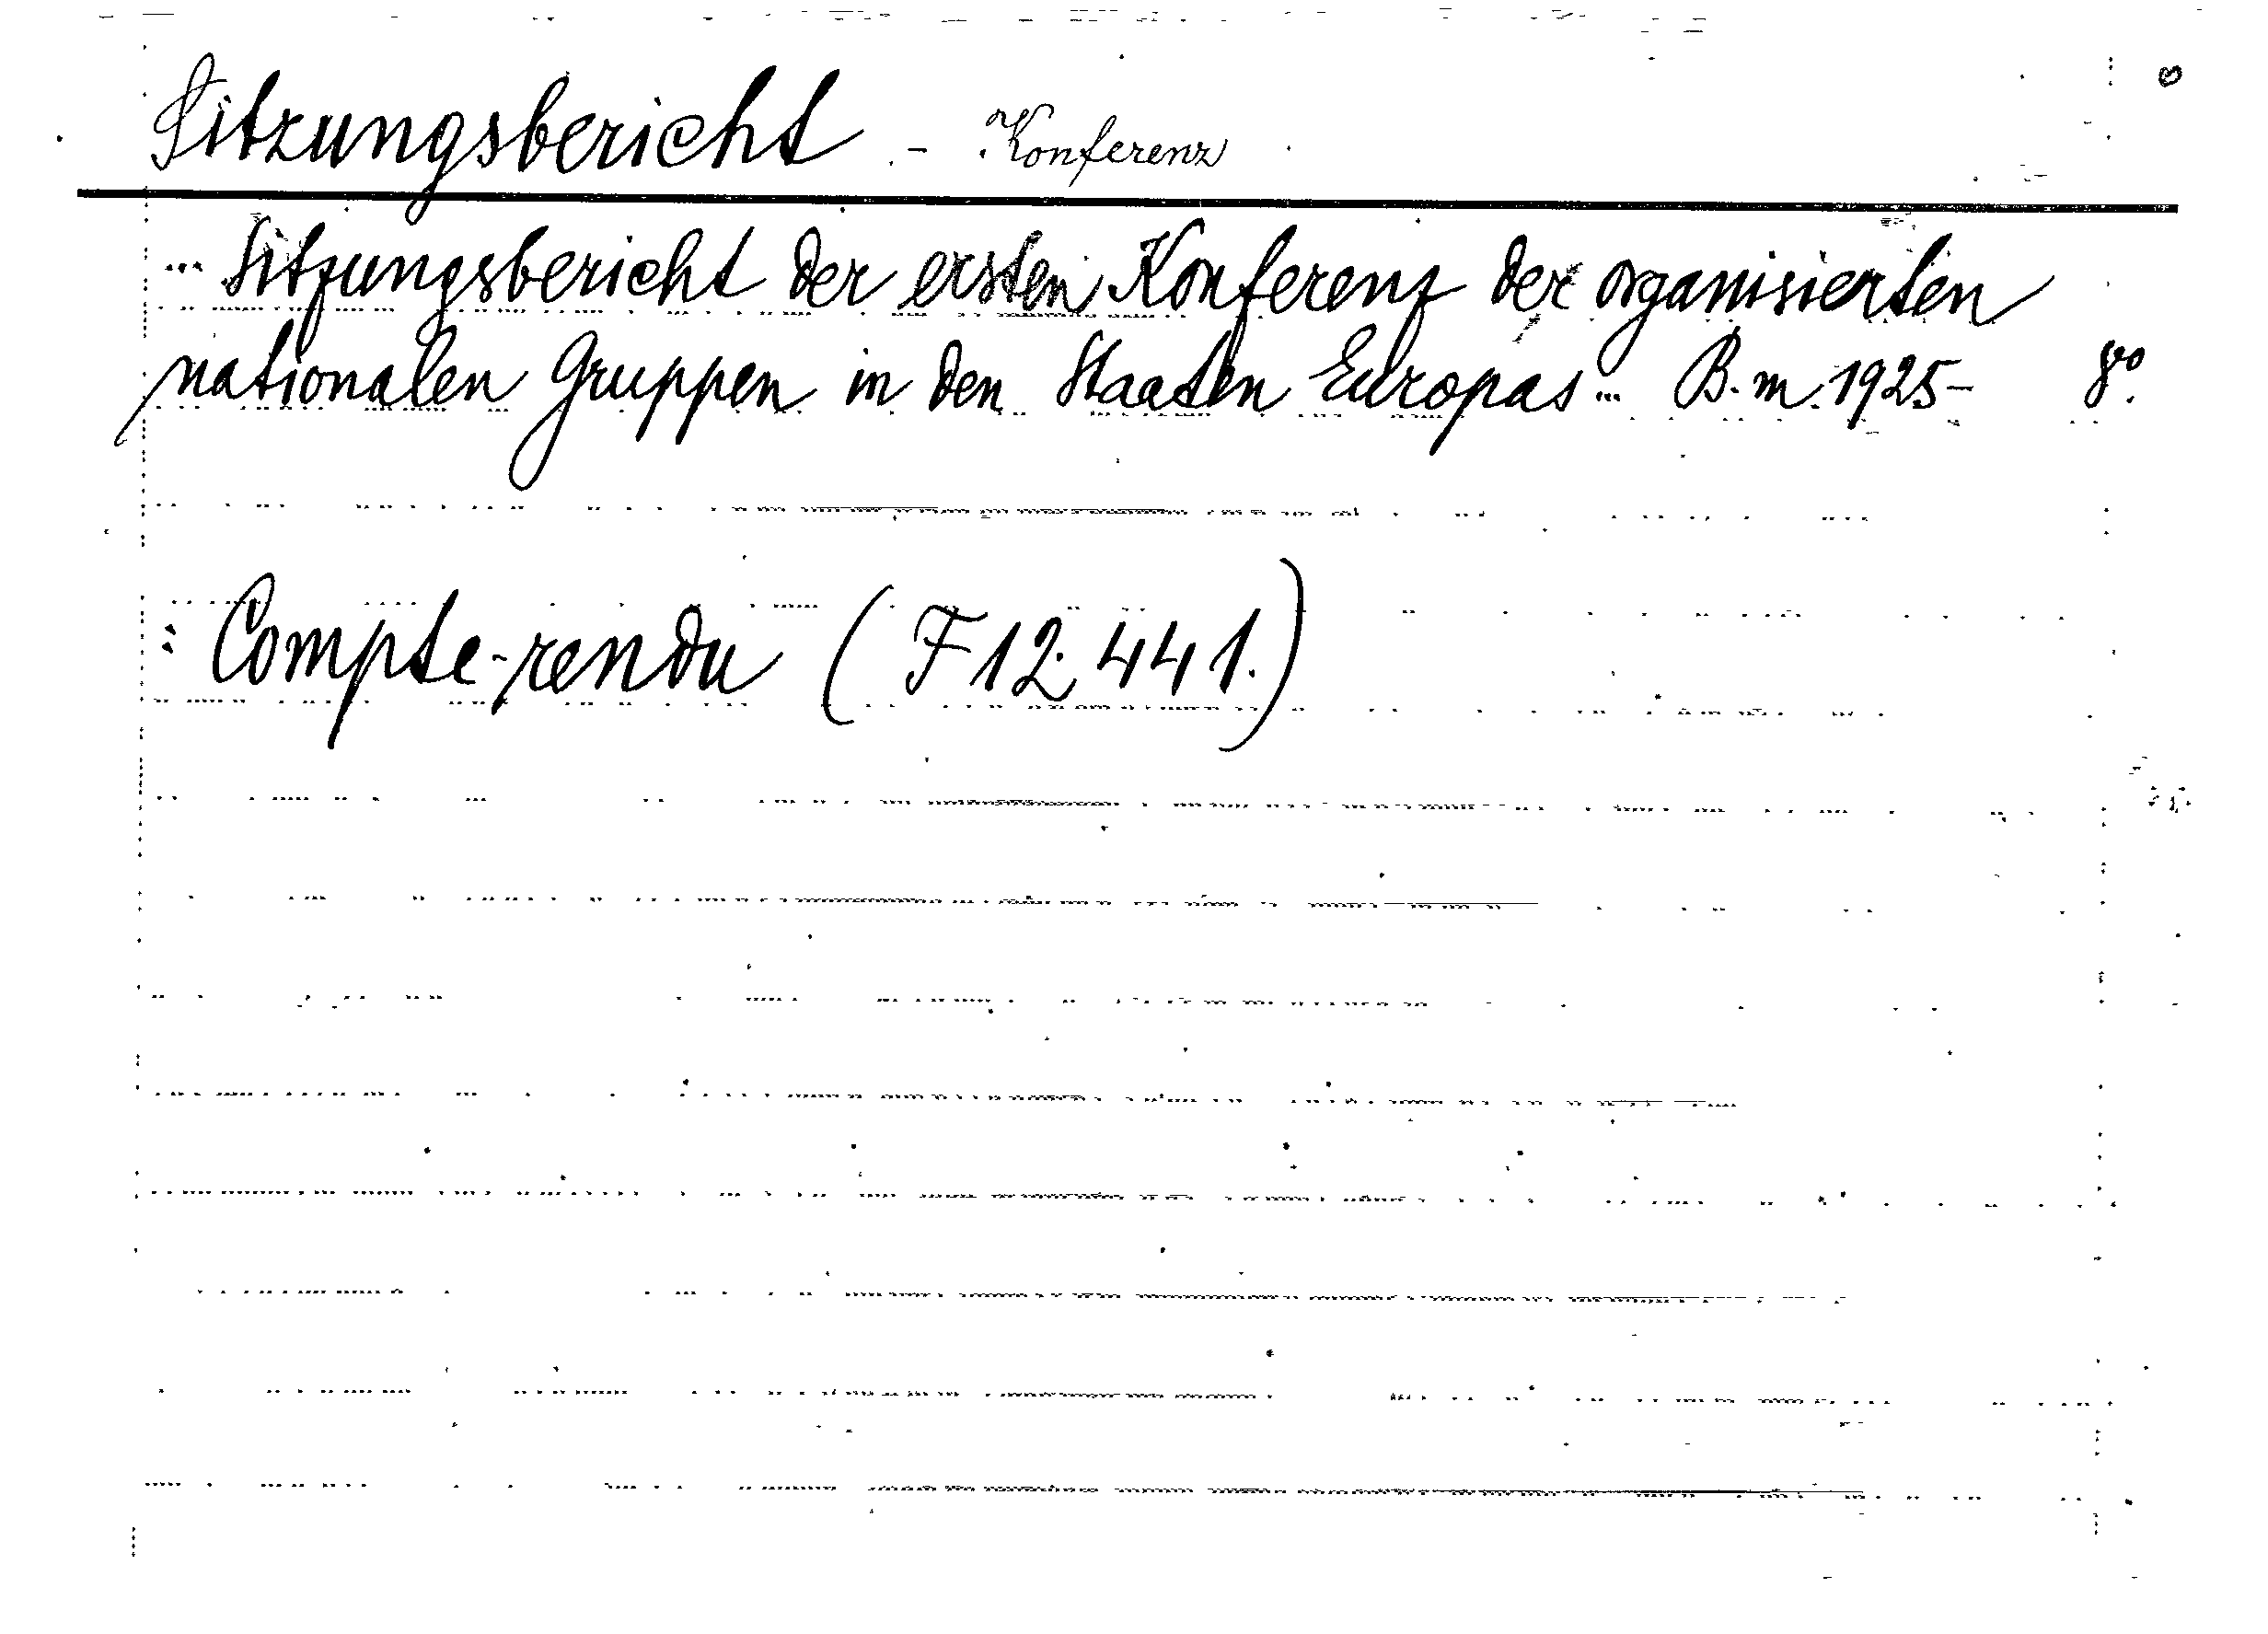 Sitzungsbericht - Konferenz
... Sitzungsbericht der ersten Konferenz der organisierten
nationalen Gruppen in den Staaten Europas... B. m. 1925- 8º.
: Compte-rendu (F 12.441.)